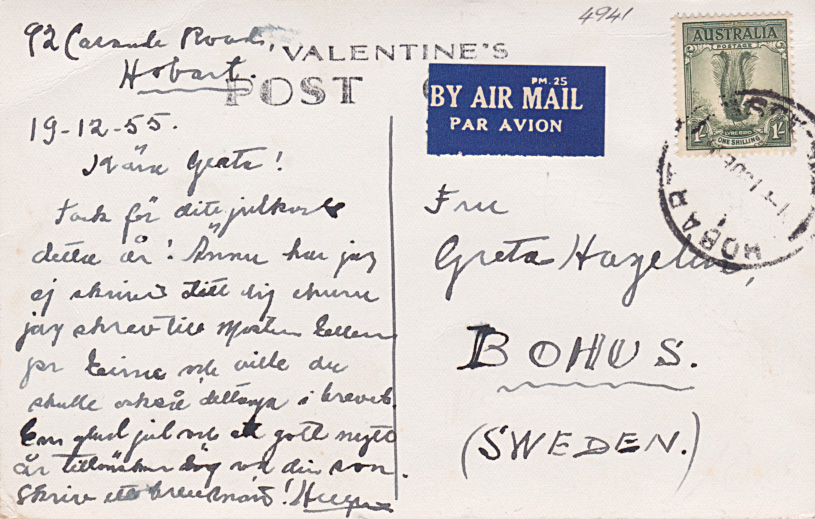 4941
92 Road,
Hobart.
VALENTINE'S
POST C
PM. 25
BY AIR MAIL
PAR AVION
AUSTRALIA
POSTAGE
1/-
LYREBIRD
ONE SHILLING
1/-
HOBART
19-12-55.
Kära Greta!
Tack för ditt julkort
detta år! Ännu har jag
ej skrivit till dig
jag skrev till Moster Ellen
och ville du
skulle också deltaga i brevet.
En glad jul och ett gott nytt
år tillönskar dig och din son.
Skriv ett brev snart!
Fru
Greta
BOHUS.
(SWEDEN.)